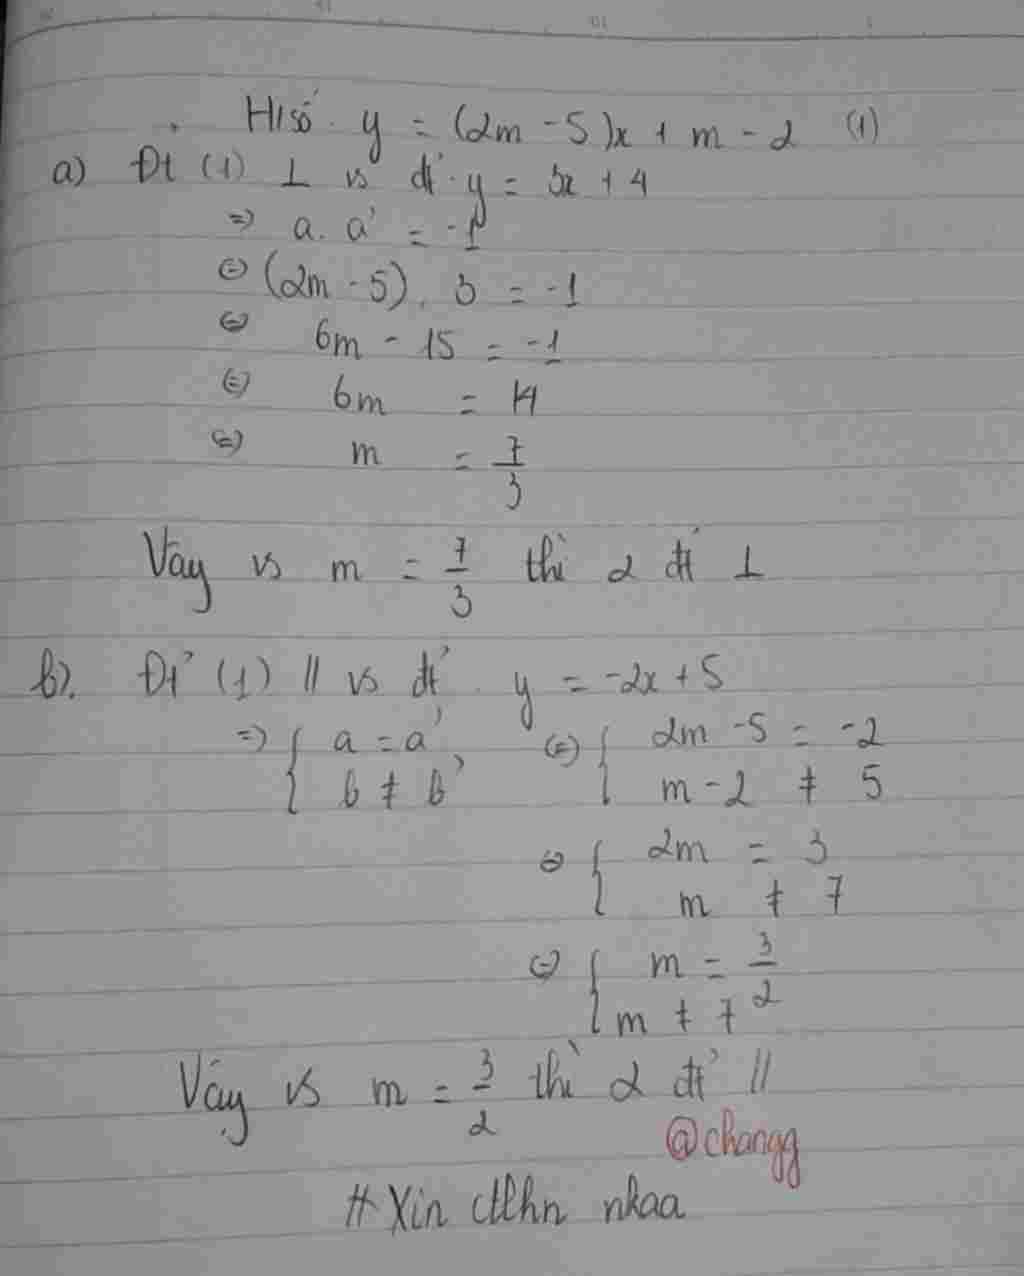 H/số y = (2m - 5)x + m - 2 (1)
a) Đt (1) ⊥ vs đt y = 3x + 4
=> a. a' = -1
<=> (2m - 5) . 3 = -1
<=> 6m - 15 = -1
<=> 6m = 14
<=> m = 7/3
Vậy vs m = 7/3 thì 2 đt ⊥
b). Đt (1) // vs đt y = -2x + 5
=> { a = a' <=> { 2m - 5 = -2
b ≠ b' m - 2 ≠ 5
<=> { 2m = 3
m ≠ 7
<=> { m = 3/2
m ≠ 7
Vậy vs m = 3/2 thì 2 đt //
@changg
# Xin ctlhn nhaa